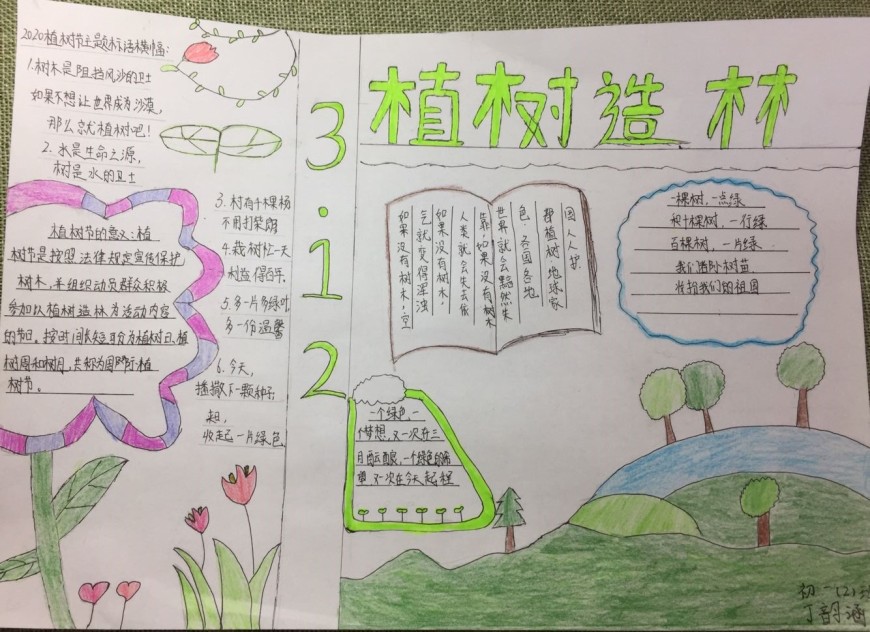 2020植树节主题标语横幅:
1.树木是阻挡风沙的卫士
如果不想让世界成为沙漠,
那么就植树吧!
2.水是生命之源,
树是水的卫士
植树节的意义:植
树节是按照法律规定宣传保护
树木,并组织动员群众积极
参加以植树造林为活动内容
的节日。按时间长短可分为植树日、植
树周和树月,共称为国际植
树节。
3.村有千棵杨
不用打柴郎
4.栽树忙一天
利益得百年.
5.多一片绿叶
多一份温馨
6.今天,
播撒下一颗种子
起,
收起一片绿色
3.12
植树造林
如果没有树木,空
气就变得混浊
如果没有树木,
人类就会失去依
靠,如果没有树木
世界就会黯然失
色.各国各地
都植树.地球家
园人人护.
一棵树,一点绿
积十棵树,一行绿
百棵树,一片绿.
我们酒阶树苗
将给我们的祖国
一个绿色,一
个梦想,又一次在三
月酝酿,一个绿色的希
望,又一次在今天起程
初一(2)班
丁韵涵